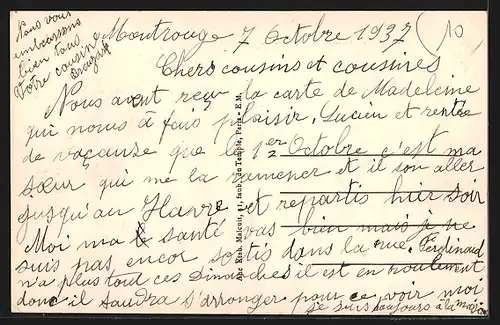 Montrouge 7 Octobre 1937
Chers cousins et cousines
Nous avont reçu la carte de Madeleine
qui nous a fais plaisir. Lucien et rentré
de vacanse que le 1er Octobre c'est ma
sœur qui me la ramener et il son aller
jusqu'au Havre et repartis hier soir
Moi ma santé vas bien mais je ne
suis pas encor sortis dans la rue. Ferdinand
n'a plus tout ces Dimanches il est en roulement
donc il faudra s'arronger pour ce voir moi
je suis toujours à la maison
Nous vous
embrassons
bien tous
Votre cousine
10
Anc. Etab. Malcuit, 41, faub. du Temple, Paris - E.M.